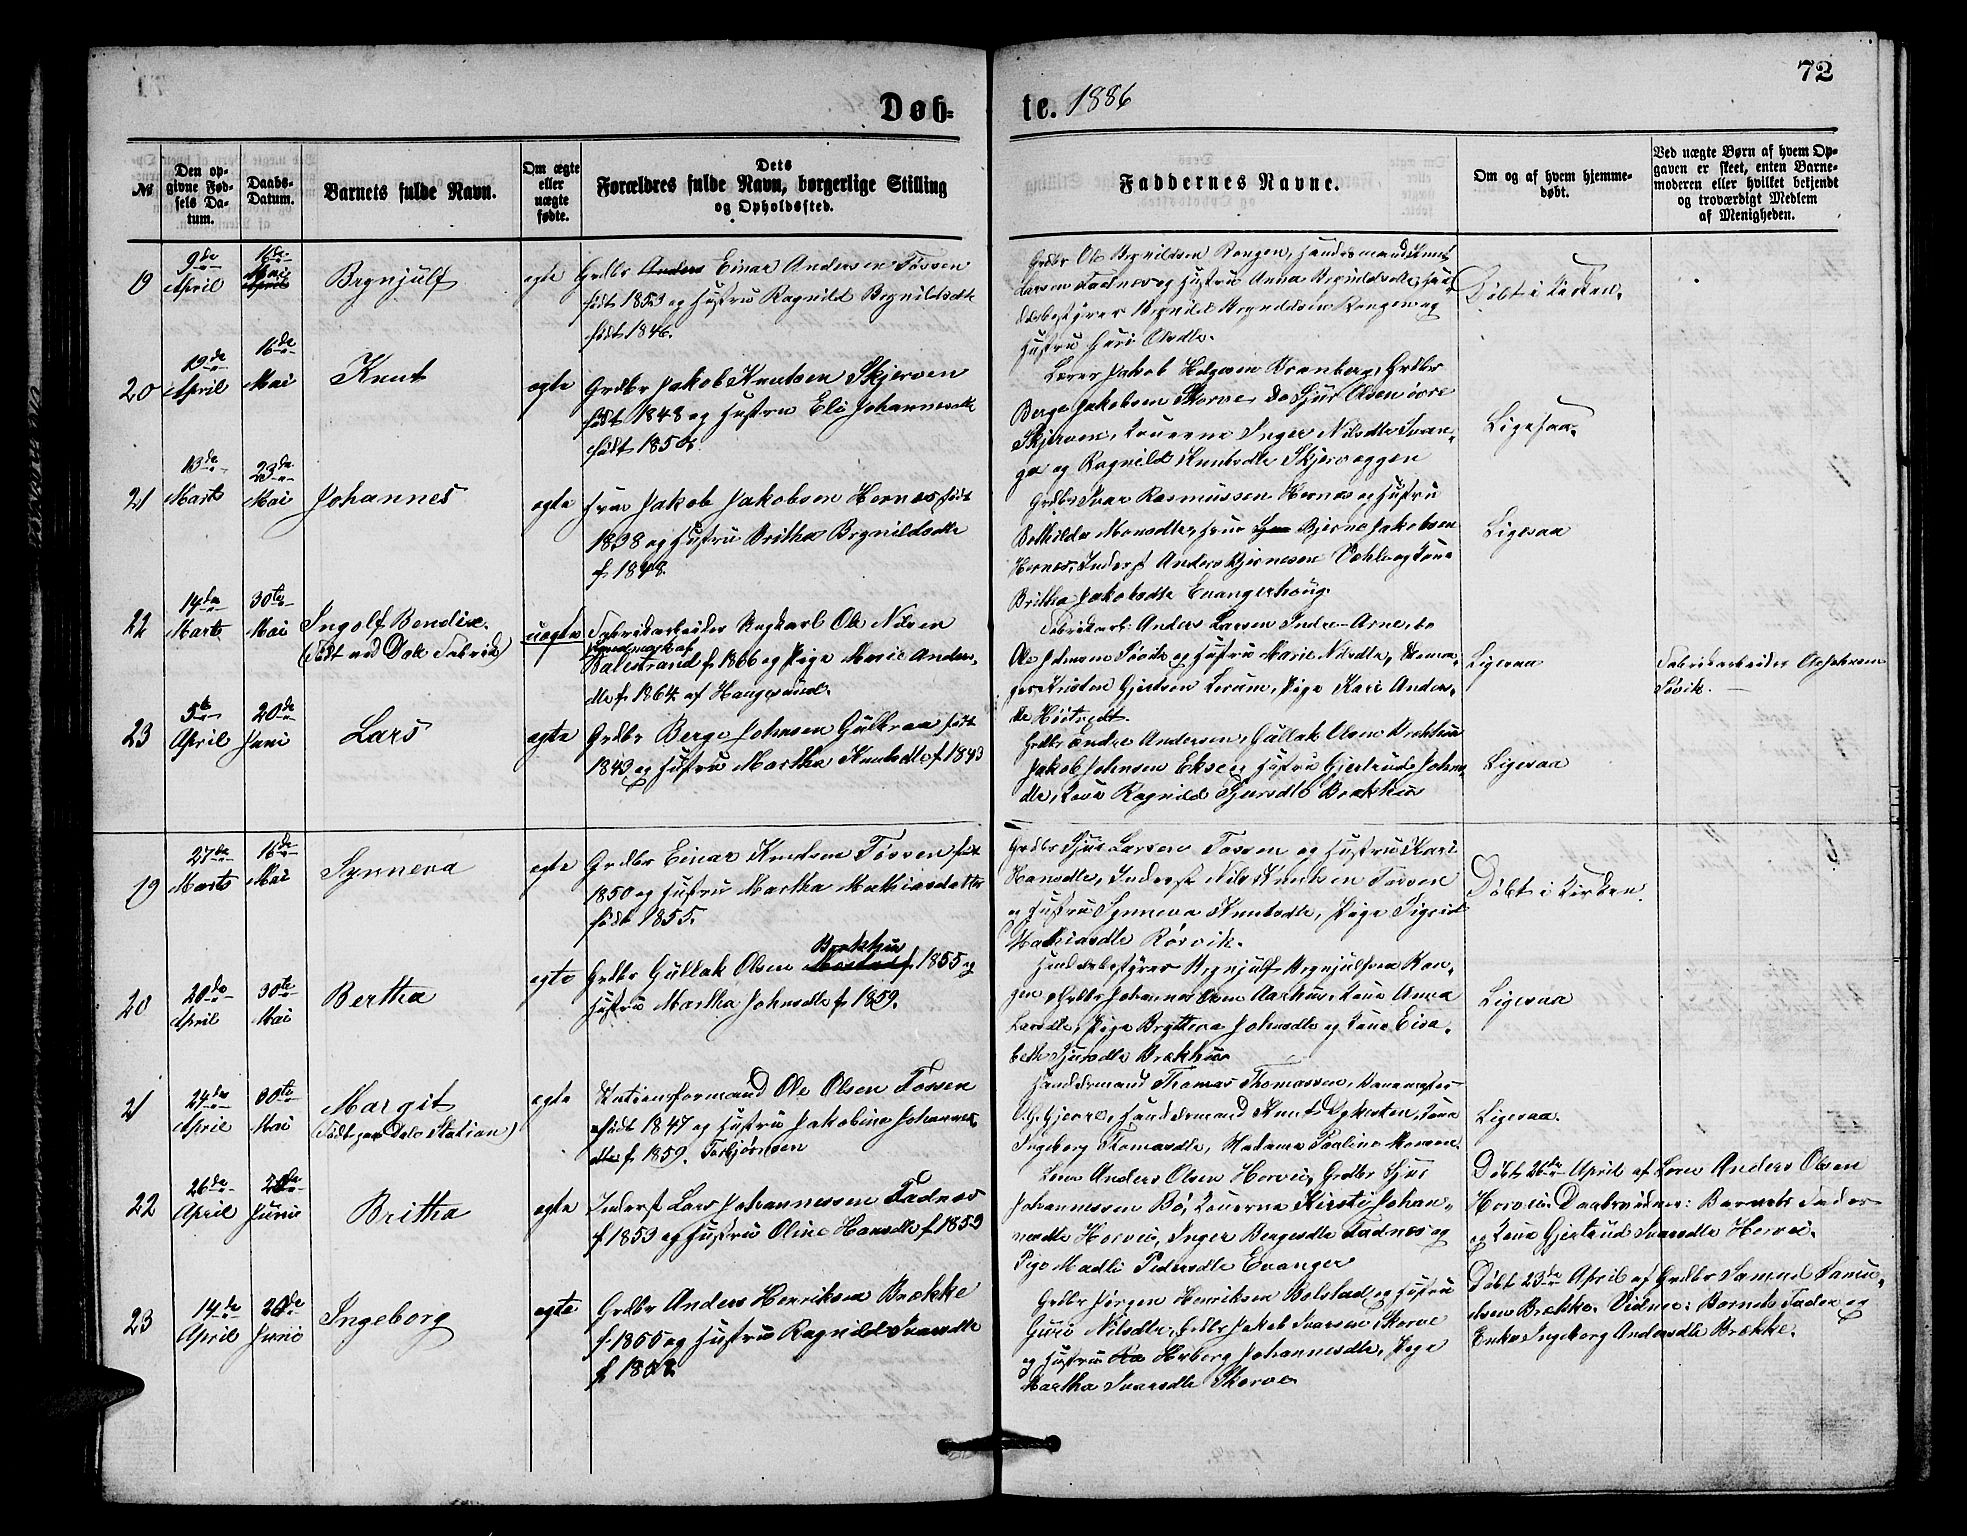 72
Døb=
te. 1886
№
Den op-
givne Fød-
sels Da-
tum.
Daabs-
Datum.
Barnets fulde Navn.
Om ægte
eller
uægte
fødte.
Dets
Forældres fulde Navn, borgerlige Stilling
og Opholdssted.
Faddernes Navne.
Om og af hvem hjemme-
døbt.
Ved uægte Børn af hvem Op-
gaven er skeet, enten Barne-
moderen eller hvilket bekjendt
og troværdigt Medlem
af Menigheden.
19
9de
April
16de
Mai
April
Brynjulf
egte
Grdbr Anders Einar Andersen Tøssen
født 1853 og Hustru Ragnild Brynildsdtr
født 1846.
Grdbr Ole Brynildsen Rongen, Handelsmand Knut
Larsen Fadnes og Hustru Anna Brynildsdtr,
Brynild Brynildsen Rongen og
Hustru Guri Olsdtr.
Døbt i Kirken.
20
19de
April
16de
Mai
Knut
egte
Grdbr Jakob Knutsen Skjerven
født 1848 og Hustru Eli Johannesdtr
født 1850.
Lærer Jakob Helgesen Kronberg, Grdbr
Berge Jakobsen Skorve, do Sjur Olsen øvre
Skjerven, Konerne Inger Nilsdtr Evan-
ger og Ragnild Knutsdtr Skjerveggen
Ligesaa.
21
13de
Marts
23de
Mai
Johannes
egte
Jakob Jakobsen Hernes født
1838 og Hustru Britha Brynildsdtr
f. 1848.
Grdbr Ivar Rasmussen Hernes og Hustru
Bothilda Monsdtr, Bjørne Jakobsen
Hernes, Inderst Anders Bjørnesen Vahle og Kone
Britha Jakobsdtr Evangerhoug.
Ligesaa
22
14de
Marts
30te
Mai
Ingolf Bendix.
(Født ved Dale Fabrik)
uegte
Fabrikarbeider Ungkarl Ole Nilsen
Balestrand f. 1866 og Pige Marie Anders-
dtr f. 1864 af Haugesund.
Fabrikarb: Anders Larsen Indre-Arne, do
Ole Johnsen Søvik og Hustru Marie Nilsdtr,
Kristen Gjertsen Lerum, Pige Kari Anders-
dtr
Ligesaa
Fabrikarbeider Ole Johnsen
Søvik.
23
5te
April
20de
Juni
Lars
egte
Grdbr Berge Johnsen Gulbraa født
1843 og Hustru Martha Knutsdtr f. 1843
Grdbr Endre Andersen, Gullak Olsen Brækhus
Jakob Johnsen Ekse og Hustru Gjertrud Johns-
dtr, Kone Ragnild Sjursdtr Brækhus
Ligesaa
19
27de
Marts
16de
Mai
Synneva
egte
Grdbr Einar Knutsen Tøssen født
1850 og Hustru Martha Mathiasdatter
født 1855.
Grdbr Sjur Larsen Tøssen og Hustru Kari
Hansdtr, Inderst Nils Knutsen Tøssen
og Hustru Synneva Knutsdtr, Pige Sigrid
Mathiasdtr Rørvik.
Døbt i Kirken.
20
20de
April
30te
Mai
Bertha
egte
Brækhus
Grdbr Gullak Olsen f. 1855 og
Hustru Martha Johnsdtr f. 1859.
Handelsbestyrer Brynjulf Brynjulfsen Ron-
gen, Grdbr Johannes Olsen Aarhus, Kone Anna
Larsdtr, Pige Brytteva Johnsdtr og Kone Elsa-
beth Sjursdtr Brækhus
Ligesaa
21
24de
April
30te
Mai
Margit
(Født paa Dale Station)
egte
Stationsformand Ole Olsen Tøssen
født 1847 og Hustru Jakobine Johannes-
dtr f. 1859. Torbjørnsen
Handelsmand Thomas Thomassen,
O. G. Gjerre, Handelsmand Knut Dykesten, Kone
Ingeborg Thomasdtr, Madame Pauline
Ligesaa.
22
26de
April
20de
Juni
Britha
egte
Inderst Lars Johannessen Fadnes
f. 1853 og Hustru Oline Hansdtr f. 1859
Anders Olsen Horvei, Grdbr Sjur
Johannessen Bø, Konerne Kirsti Johan-
nesdtr Horvei, Inger Bergesdtr Fadnes og
Pige Madli Pedersdtr Evanger
Døbt 26de April af Anders Olsen
Horvei. Daabsvidner: Barnets Fader
og Kone Gjertrud Ivarsdtr Horvei.
23
14de
April
20de
Juni
Ingeborg
egte
Grdbr Anders Henriksen Brække
f. 1855 og Hustru Ragnild Ivarsdtr
f. 1858
Grdbr Jørgen Henriksen Bolstad og Hustru
Guro Nilsdtr, Grdbr Jakob Ivarsen Skorve
og Hustru Herborg Johannesdtr, Pige
Martha Ivarsdtr Skorve
Døbt 23de April af Grdbr Samuel Samu-
elsen Brække. Vidner: Barnets Fader og
Enke Ingeborg Andersdtr Brække.